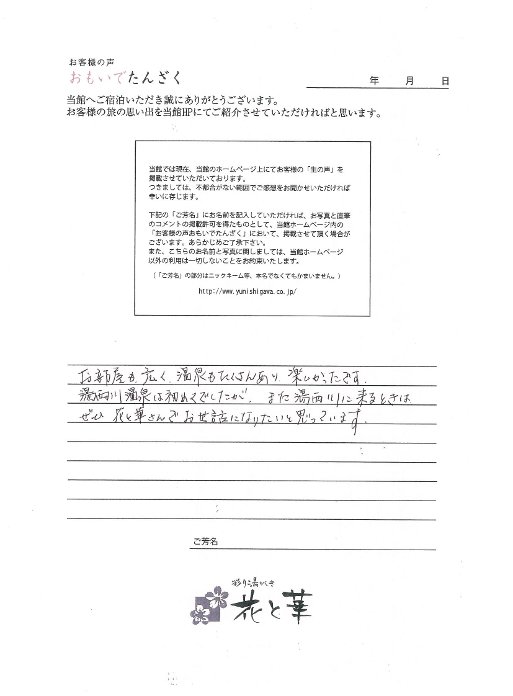 お客様の声
おもいでたんざく
年 月 日
当館へご宿泊いただき誠にありがとうございます。
お客様の旅の思い出を当館HPにてご紹介させていただければと思います。
当館では現在、当館のホームページ上にてお客様の「生の声」を
掲載させていただいております。
つきましては、不都合がない範囲でご感想をお聞かせいただければ
幸いに存じます。
下記の「ご芳名」にお名前を記入していただければ、お写真と直筆
のコメントの掲載許可を得たものとして、当館ホームページ内の
「お客様の声おもいでたんざく」において、掲載させて頂く場合が
ございます。あらかじめご了承下さい。
また、こちらのお名前と写真に関しましては、当館ホームページ
以外の利用は一切しないことをお約束いたします。
(「ご芳名」の部分はニックネーム等、本名でなくてもかまいません。)
http://www.yunishigawa.co.jp/
お部屋も広く、温泉もたくさんあり楽しかったです。
湯西川温泉は初めてでしたが、また湯西川に来るときは
ぜひ花と華さんでお世話になりたいと思っています。
ご芳名
彩り湯かしき
花と華